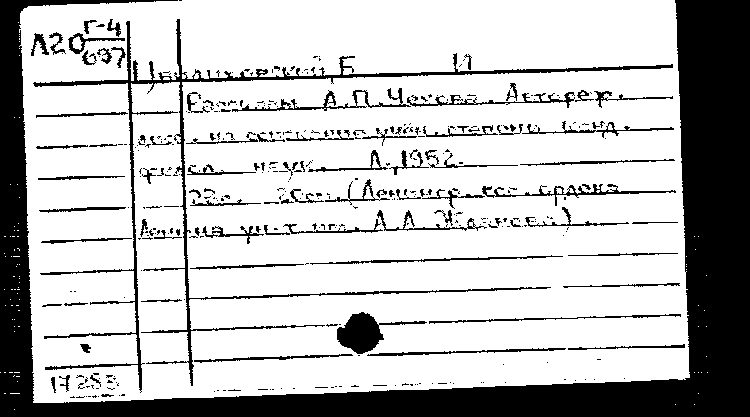 Л20 Г-4
697
Цвилиховский, Б И
Рассказы А.П. Чехова. Автореф.
дисс. на соискание учён. степени канд.
филол. наук. Л., 1952.
22с. 20см. (Ленингр. гос. ордена
Ленина ун-т им. А.А. Жданова).
17253